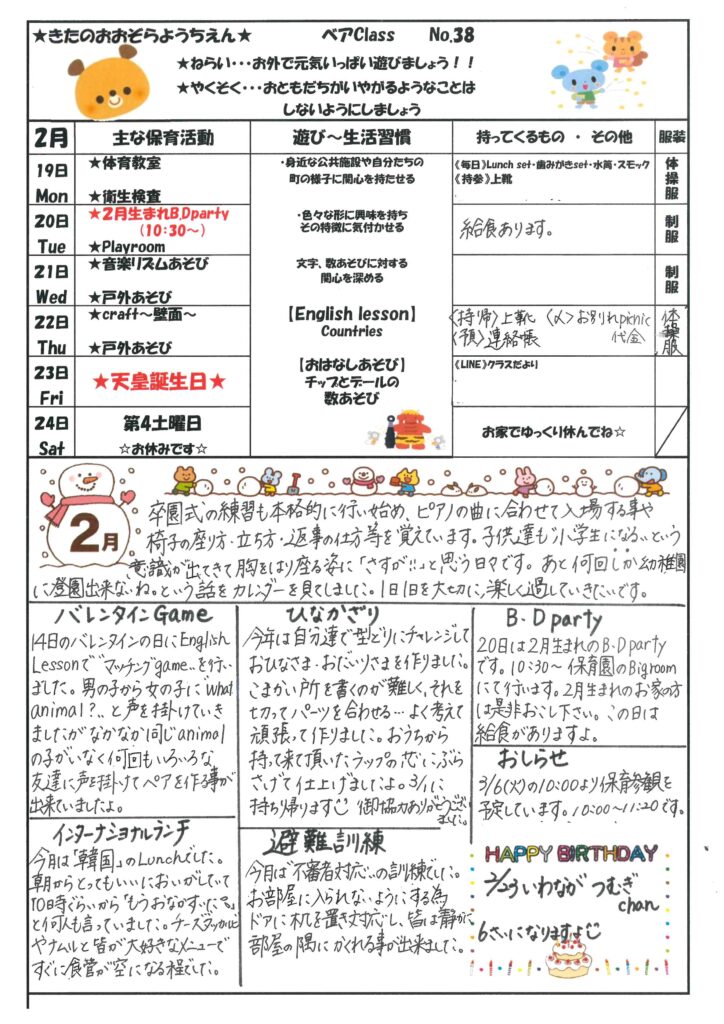 ★きたのおおぞらようちえん★ ベアClass No.38
★ねらい・・・お外で元気いっぱい遊びましょう！！
★やくそく・・・おともだちがいやがるようなことは
しないようにしましょう
2月 主な保育活動 遊び～生活習慣 持ってくるもの ・ その他 服装
19日 Mon
★体育教室
★衛生検査
・身近な公共施設や自分たちの
町の様子に関心を持たせる
《毎日》Lunch set・歯みがきset・水筒・スモック
《持参》上靴
体操服
20日 Tue
★2月生まれB.Dparty
(10:30～)
★Playroom
・色々な形に興味を持ち
その特徴に気付かせる
給食あります。
制服
21日 Wed
★音楽リズムあそび
★戸外あそび
文字、数あそびに対する
関心を深める
制服
22日 Thu
★craft～壁面～
★戸外あそび
【English lesson】
Countries
〈持帰〉上靴 〈〆〉お別れpicnic
代金
〈預〉連絡帳
体操服
23日 Fri
★天皇誕生日★
【おはなしあそび】
チップとデールの
数あそび
《LINE》クラスだより
24日 Sat
第4土曜日
☆お休みです☆
お家でゆっくり休んでね☆
2月
卒園式の練習も本格的に行い始め、ピアノの曲に合わせて入場する事や
椅子の座り方・立ち方・返事の仕方等を覚えています。子供達も"小学生になる"という
意識が出てきて胸をはり座る姿に「さすが!!」と思う日々です。あと何回しか幼稚園
に登園出来ないね。という話をカレンダーを見てしました。1日1日を大切に、楽しく過していきたいです。
バレンタインGame
14日のバレンタインの日にEnglish
Lessonで"マッチングgame"を行い
ました。男の子から女の子に"what
animal?"と声を掛けていき
ましたがなかなか同じanimal
の子がいなく何回もいろいろな
友達に声を掛けてペアを作る事が
出来ていましたよ。
ひなかざり
今年は自分達で型どりにチャレンジして
おひなさま・おだいりさまを作りました。
こまかい所を書くのが難しく、それを
切ってパーツを合わせる…よく考えて
頑張って作りました。おうちから
持って来て頂いたラップの芯にぶら
さげて仕上げましたよ。3/1に
持ち帰ります 御協力ありがとうござい
ました。
B・D party
20日は2月生まれのB・D party
です。10:30～保育園のBigroom
にて行います。2月生まれのお家の方
は是非お越し下さい。この日は
給食がありますよ。
おしらせ
3/6(火)の10:00より保育参観を
予定しています。10:00～11:20です。
インターナショナルランチ
今月は「韓国」のLunchでした。
朝からとってもいいにおいがしていて
10時ぐらいから「もうおなかすいた～」
と何人も言っていました。チーズタッカルビ
やナムルと皆が大好きなメニューで
すぐに食管が空になる程でした。
避難訓練
今月は"不審者対応"の訓練でした。
お部屋に入られないようにする為
ドアに机を置き対応し、皆は静かに
部屋の隅にかくれる事が出来ました。
HAPPY BIRTHDAY
2/23 いわなが つむぎ
chan
6さいになります